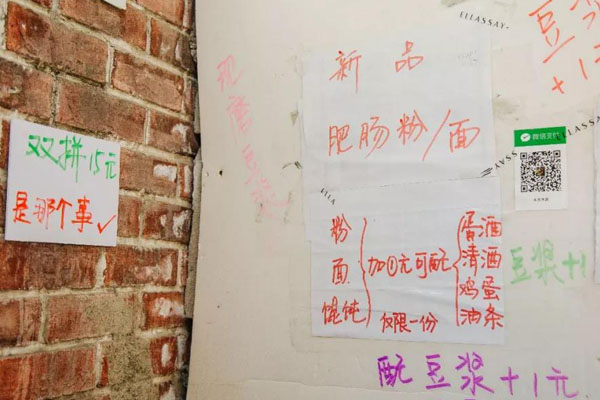 双拼·15元
是那个事✓
现磨豆浆
ELLASSAY
新品
肥肠粉/面
豆浆
+1
微信支付
ELLASSAY
ELLA
粉
面
馄饨
加①元可配
仅限一份
蛋酒
清酒
鸡蛋
油条
豆浆+1
配豆浆+1元